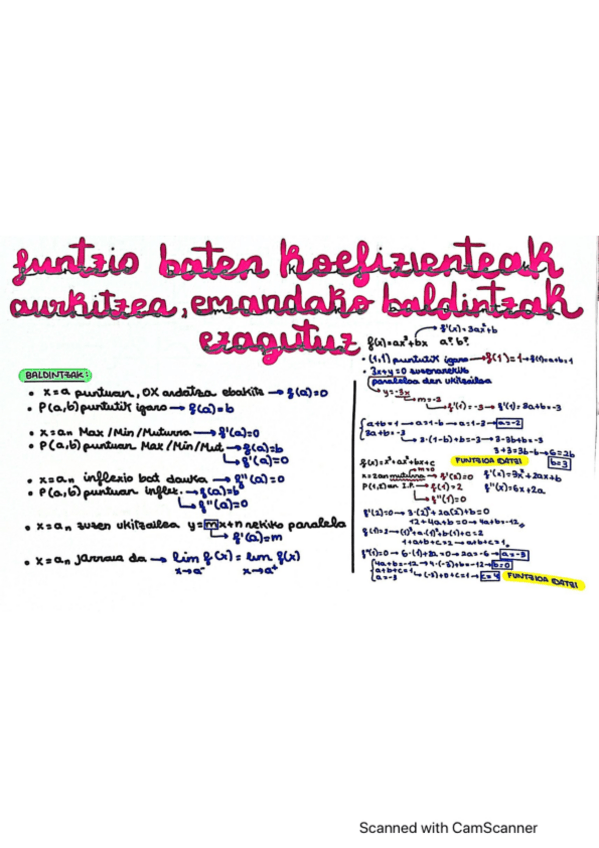 funtzio baten koefizienteak
aurkitzea, emandako baldintzak
ezagutuz
BALDINTZAK:
• x=a puntuan, OX ardatza ebakitu → f(a)=0
• P(a,b) puntutik igaro → f(a)=b
• x=a n Max/Min/Muturra → f'(a)=0
• P(a,b) puntuan Max/Min/Mut → f(a)=b
↳ f'(a)=0
• x=a n inflexio bat dauka → f''(a)=0
• P(a,b) puntuan inflex. → f(a)=b
↳ f''(a)=0
• x=a n zuzen ukitzailea y=mx+n rekiko paralela
↳ f'(a)=m
• x=a n jarraia da → lim f(x) = lim f(x)
x→a⁻ x→a⁺
f'(x)=3ax²+b
f(x)=ax³+bx a? b?
• (1,1) puntutik igaro → f(1)=1 → f(1)=a+b=1
• 3x+y=0 zuzenarekiko
paraleloa den ukitzailea
y=-3x
↳ m=-3
↳ f'(1)=-3 → f'(1)=3a+b=-3
a+b=1 → a=1-b → a=1-3 → a=-2
3a+b=-3
↳ 3·(1-b)+b=-3 → 3-3b+b=-3
3+3=3b-b → 6=2b
b=3
FUNTZIOA IDATZI
f(x)=x³+ax²+bx+c
m=0
x=2an muturra → f'(2)=0 f'(x)=3x²+2ax+b
P(1,2)an I.P. → f(1)=2 f''(x)=6x+2a
↳ f''(1)=0
f'(2)=0 → 3·(2)²+2a(2)+b=0
12+4a+b=0 → 4a+b=-12
f(1)=2 → (1)³+a·(1)²+b(1)+c=2
1+a+b+c=2 → a+b+c=1
f''(1)=0 → 6·(1)+2a=0 → 2a=-6 → a=-3
4a+b=-12 → 4·(-3)+b=-12 → b=0
a+b+c=1
a=-3 ↳ (-3)+0+c=1 → c=4 FUNTZIOA IDATZI
Scanned with CamScanner